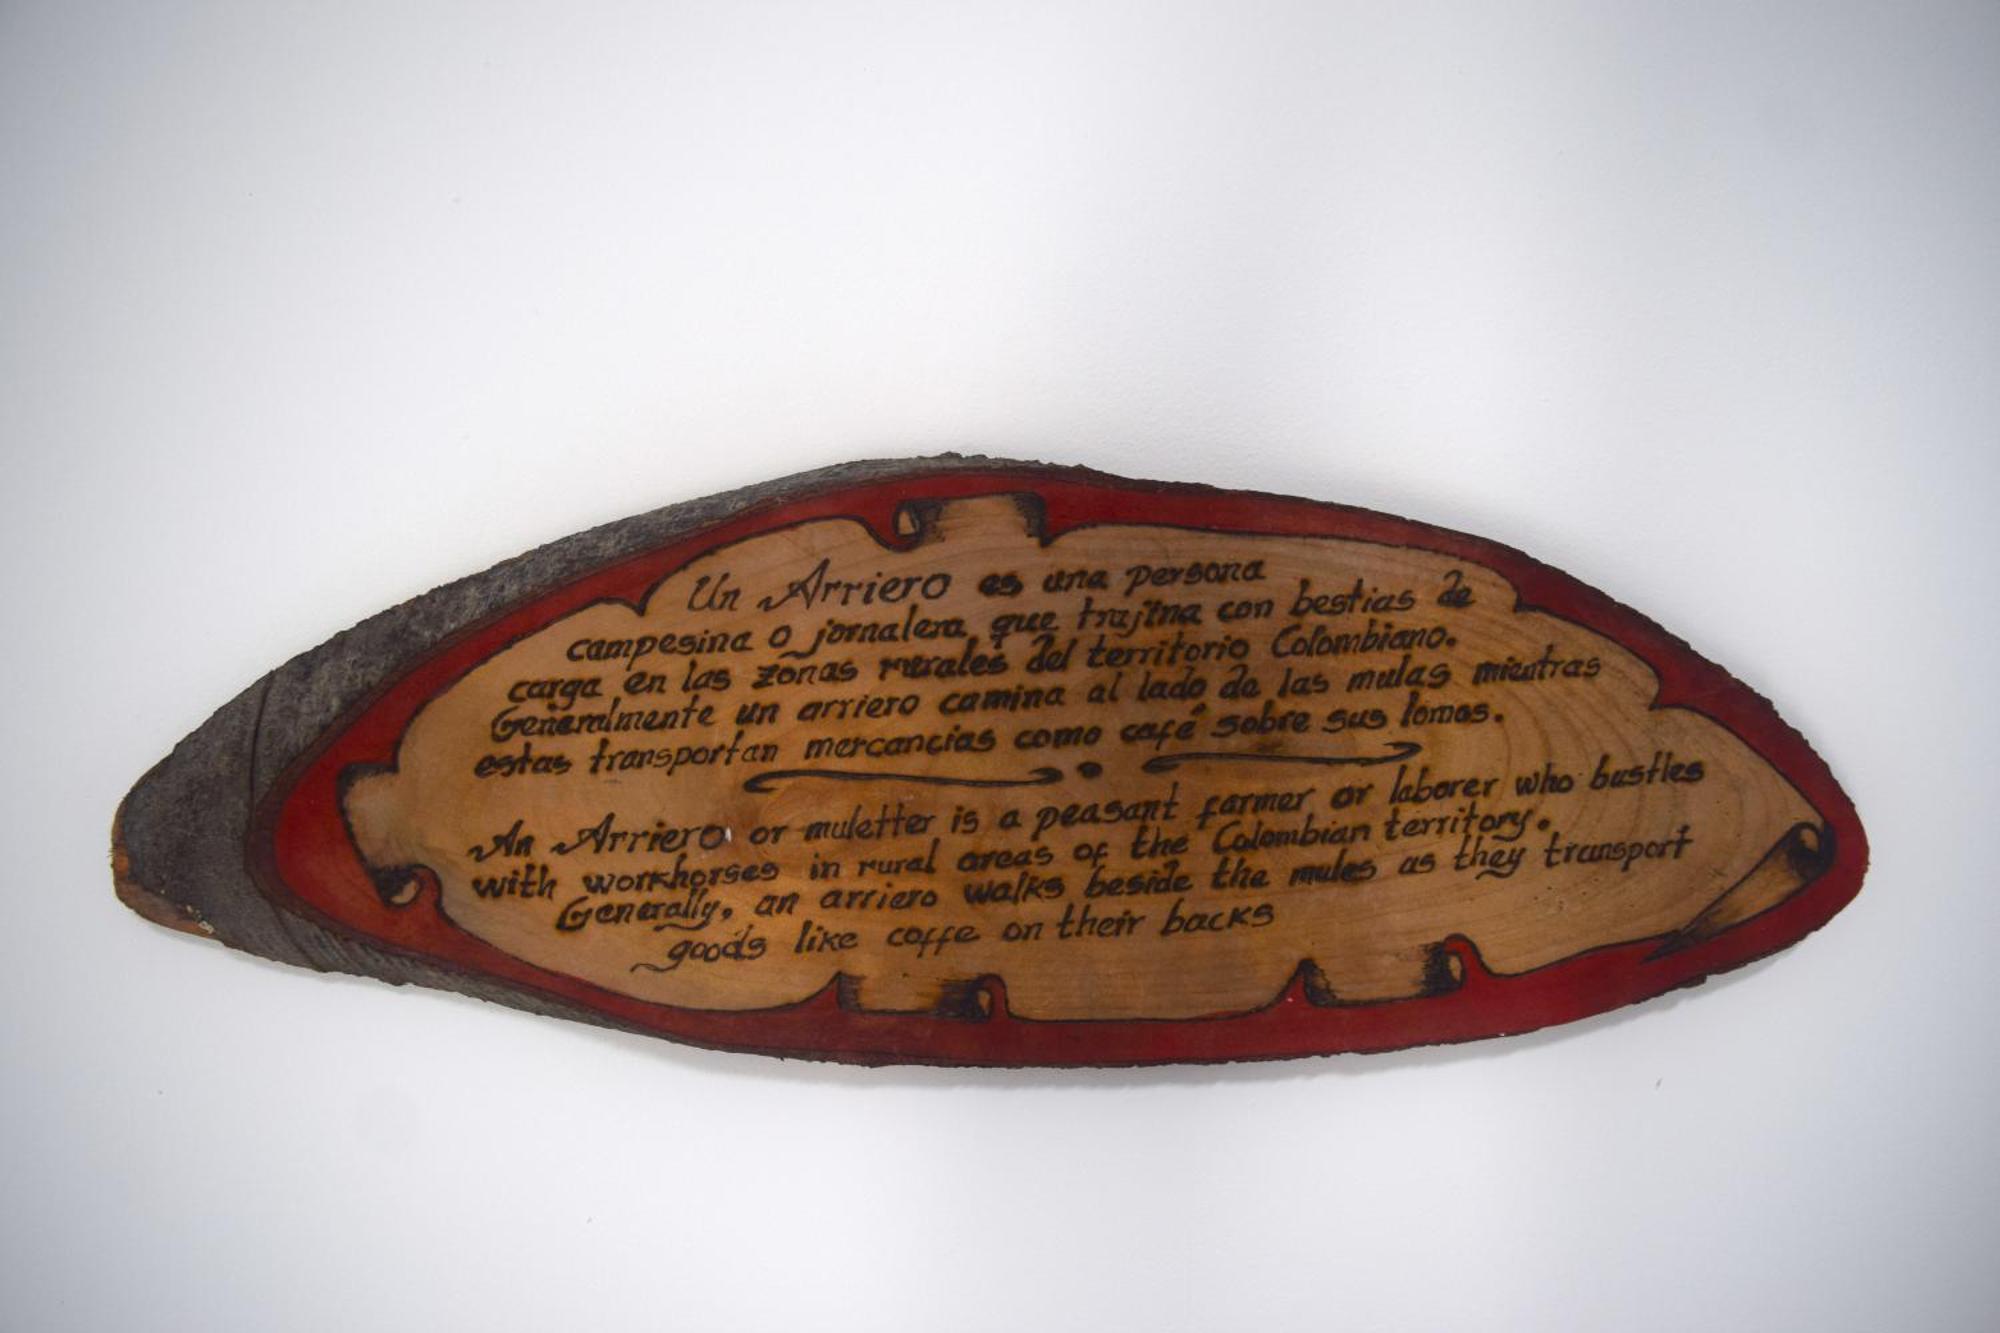 Un Arriero es una persona
campesina o jornalera que trajina con bestias de
carga en las zonas rurales del territorio Colombiano.
Generalmente un arriero camina al lado de las mulas mientras
estas transportan mercancias como café sobre sus lomos.
An Arriero or muletter is a peasant farmer or laborer who bustles
with workhorses in rural areas of the Colombian territory.
Generally, an arriero walks beside the mules as they transport
goods like coffe on their backs